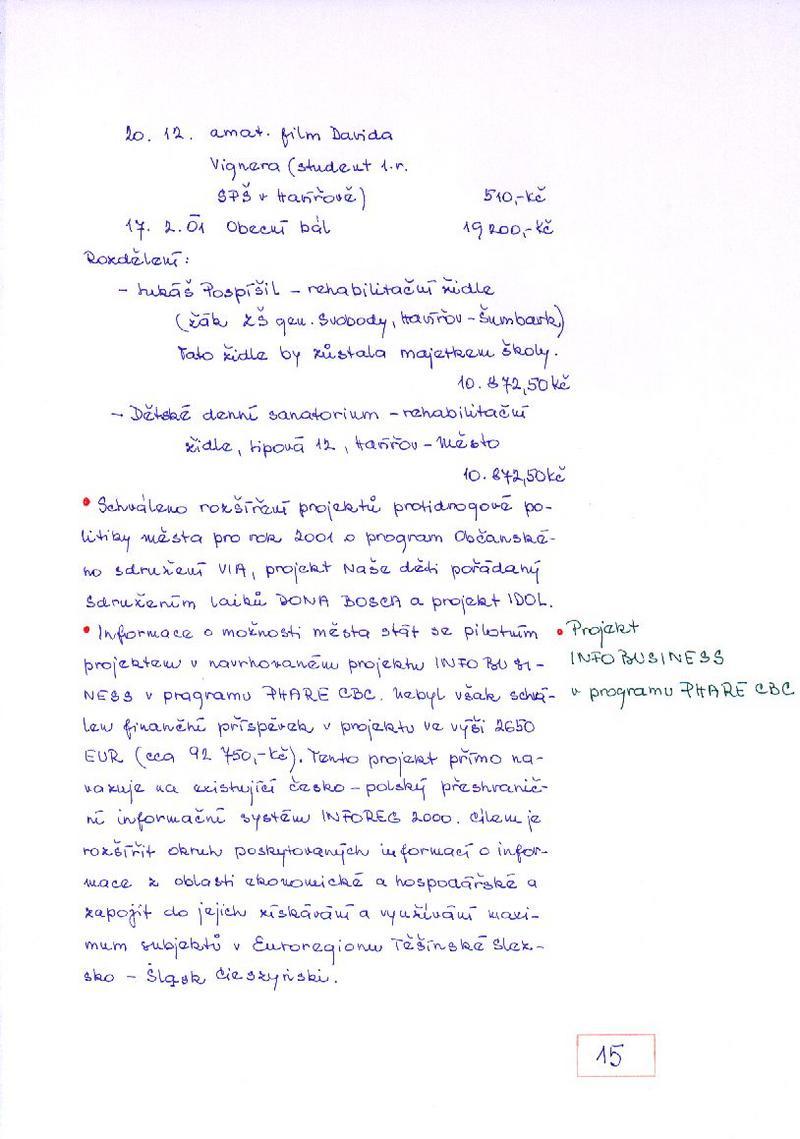 20. 12. amat. film Davida
Vignera (student 1.r.
SPŠ v Havířově) 510,-Kč
17. 2. 01 Obecní bál 19 200,-Kč
Rozdělení:
- Lukáš Pospíšil - rehabilitační židle
(žák ZŠ gen. Svobody, Havířov-Šumbark)
Tato židle by zůstala majetkem školy.
10.872,50Kč
- Dětské denní sanatorium - rehabilitační
židle, Lípová 12, Havířov - Město
10.872,50Kč
• Schváleno rozšíření projektů protidrogové po-
litiky města pro rok 2001 o program Občanské-
ho sdružení VIA, projekt Naše děti pořádaný
Sdružením laiků DONA BOSCA a projekt IDOL.
• Informace o možnosti města stát se pilotním
projektem v navrhovaném projektu INFO BUSI-
NESS v programu PHARE CBC. Nebyl však schvá-
len finanční příspěvek v projektu ve výši 2650
EUR (cca 92 750,-Kč). Tento projekt přímo na-
vazuje na existující česko-polský přeshranič-
ní informační systém INFOREG 2000. Cílem je
rozšířit okruh poskytovaných informací o infor-
mace z oblasti ekonomické a hospodářské a
zapojit do jejich získávání a využívání maxi-
mum subjektů v Euroregionu Těšínské Slez-
sko - Śląsk Cieszyński.
• Projekt
INFO BUSINESS
v programu PHARE CBC
15